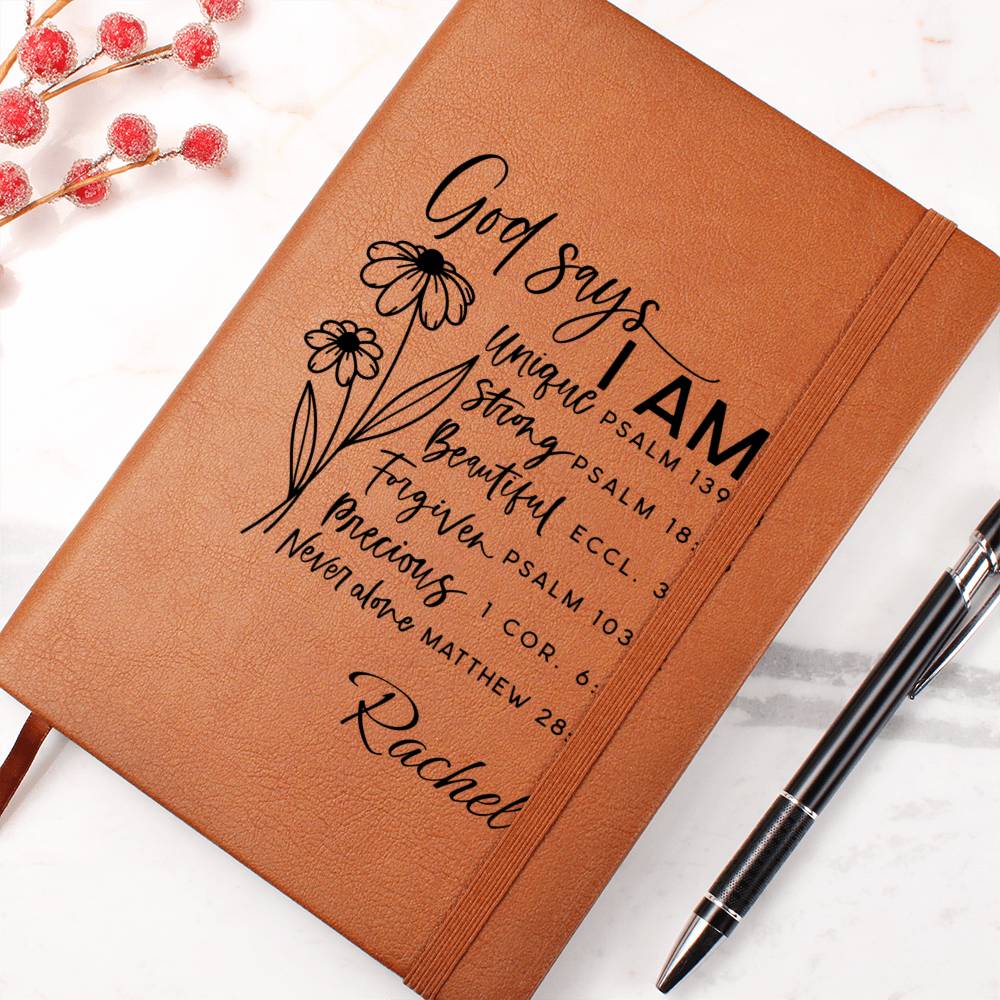 God says
I AM
Unique PSALM 139
Strong PSALM 18:
Beautiful ECCL. 3
Forgiven PSALM 103
Precious 1 COR. 6:
Never alone MATTHEW 28:
Rachel